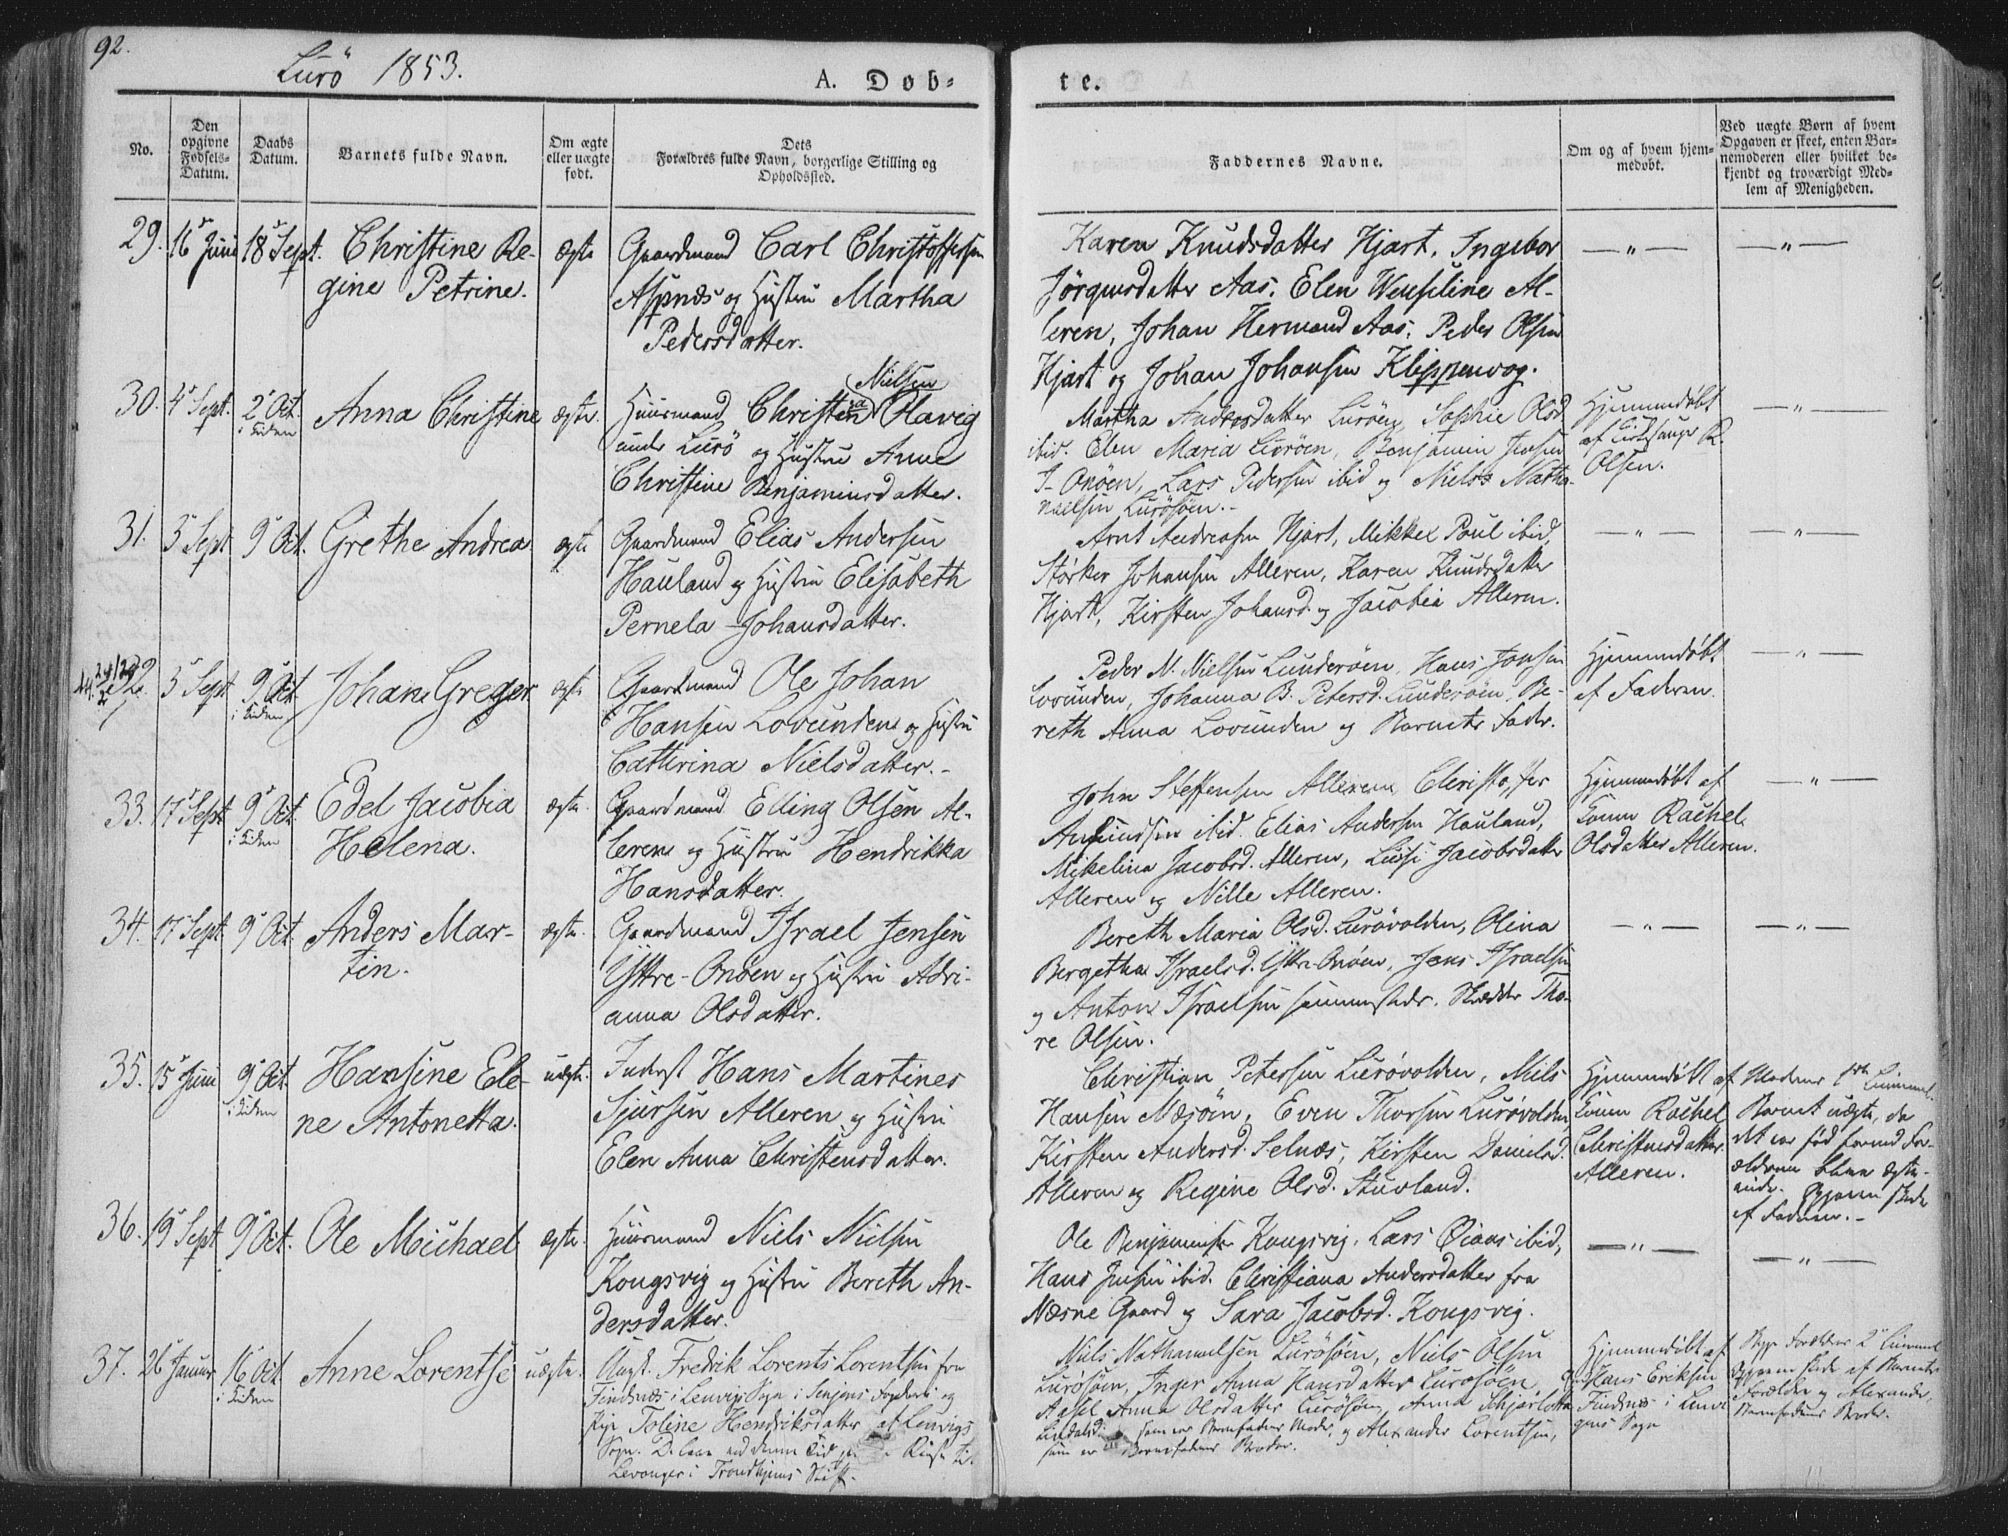 92.
Lurö 1853.
A. Døb-
te.
No.
Den opgivne Fødsels-Datum.
Daabs Datum.
Barnets fulde Navn.
Om ægte eller uægte født.
Dets Forældres fulde Navn, borgerlige Stilling og Opholdssted.
Faddernes Navne.
Om og af hvem hjem-medøbt.
Ved uægte Børn af hvem Opgaven er skeet, enten Bar-nemoderen eller hvilket be-kjendt og troværdigt Med-lem af Menigheden.
29. 16 Juni 18 Sept. Christine Re-
gine Petrine.
ægte
Gaardmand Carl Christoffersen
Aspnæs og Hustru Martha
Pedersdatter.
Karen Knudsdatter Hjart, Ingebor
Jörgensdatter Aas, Elen Wenseline Al-
leren, Johan Hermand Aas, Peder Olsen
Hjart og Johan Johansen Klippenvog.
— " —
— " —
30. 4 Sept. 2 Oct. i Kirken Anna Christine
ægte.
Nielsen
Huusmand Christen Olavig
under Lurö og Hustru Anne
Christine Benjaminsdatter.
Martha Andersdatter Luröen, Sophie Olsd
ibid. Elen Maria Luröen, Benjamin Jensen
I- Onöen, Lars Pedersen ibid og Niels Natha-
naelsen Lurösöen.-
Hjemmedøbt
af Kirkesanger R.
Olsen.
— " —
31. 5 Sept 9 Oct. Grethe Andrea
ægte
Gaardmand Elias Andersen
Hauland og Hustru Elisabeth
Pernela Johansdatter.
Arnt Andreasen Hjart, Mikkel Poul ibid,
Störker Johansen Alleren, Karen Knudsdatter
Hjart, Kirsten Johansd. og Jacobia Alleren.
— " —
— " —
32. 5 Sept 9 Oct i Kirken Johan Greger
ægte
Gaardmand Ole Johan
Hansen Lovunden og Hustru
Cathrina Nielsdatter.-
Peder N. Nielsen Lunderöen, Hans Jonsen
Lovunden, Johanna B. Petersd. Lunderöen, Be-
reth Anna Lovunden og Barnets Fader.
Hjemmedøbt
af Faderen.
— " —
33. 17 Sept 9 Oct i Kirken Edel Jacobia
Helena.
ægte.
Gaardmand Elling Olsen Al-
leren og Hustru Hendrikka
Hansdatter.
John Steffensen Alleren, Christoffer
Amundsen ibid. Elias Andersen Hauland,
Mikelina Jacobsd. Alleren, Luisi Jacobsdatter
Alleren og Nille Alleren.
Hjemmedøbt af
Konen Rachel
Olsdatter Alleren.
— " —
34. 17 Sept 9 Oct. Anders Mar-
tin.
ægte.
Gaardmand Israel Jensen
Yttre-Onöen og Hustru Adri-
anna Olsdatter.
Bereth Maria Olsd. Lurövolden, Olina
Bergetha Israelsd. Yttre-Onöen, Jens Israelsen
og Anton Israelsen sammesteds. Skrædder Tho-
re Olsen.
— " —
— " —
35. 15 Juni 9 Oct. i Kirken Hansine Ele-
ne Antonetta.
uægte.
Inderst Hans Martines
Sjursen Alleren og Hustru
Elen Anna Christensdatter.
Christian Petersen Lurövolden, Nils
Hansen Næsöen, Even Thorsen Lurövolden
Kirsten Andersd. Selnæs, Kirsten Danielsd.
Alleren og Regine Olsd. Stuvland.
Hjemmedøbt af
Konen Rachel
Christensdatter
Alleren.
Moderens 1ste
Barnet uægte, da
det var fød forend For-
ældrene bleve ægte-
viede. skede
af Faderen.-
36. 19 Sept 9 Oct. Ole Michael
ægte.
Huusmand Niels Nielsen
Kongsvig og Hustru Bereth An-
dersdatter.
Ole Benjaminsen Kongsvig, Lars ibid,
Hans Jensen ibid. Christiana Andersdatter fra
Næsne Gaard og Sara Jacobsd. Kongsvig.
— " —
— " —
37. 26 Januar 16 Oct i Kirken Anne Lorentse
uægte.
Ungk. Fredrik Lorents Lorentsen fra
Findsnæs i Lenvigs Sogn i Senjens Fogderi og
Pige Toline Hendriksdatter af Lenvigs
Sogn.
Levanger i Trondhjems Stift.
Niels Nathanaelsen Lurösöen, Niels Olsen
Lurösöen, Inger Anna Hansdatter Lurösöen,
Anna Olsdatter Lurösöen, Anna
som er Barnefaderens Moder, og Alexander Lorentsen,
som er Barnefaderens Broder.
Hjemmedøbt af
Hans Eriksen
Findsnæs i Lenvi-
gens Sogn
Begge Forældres 2
skede af Barnets
Forældre og Alexander,
Barnefaderens Broder.